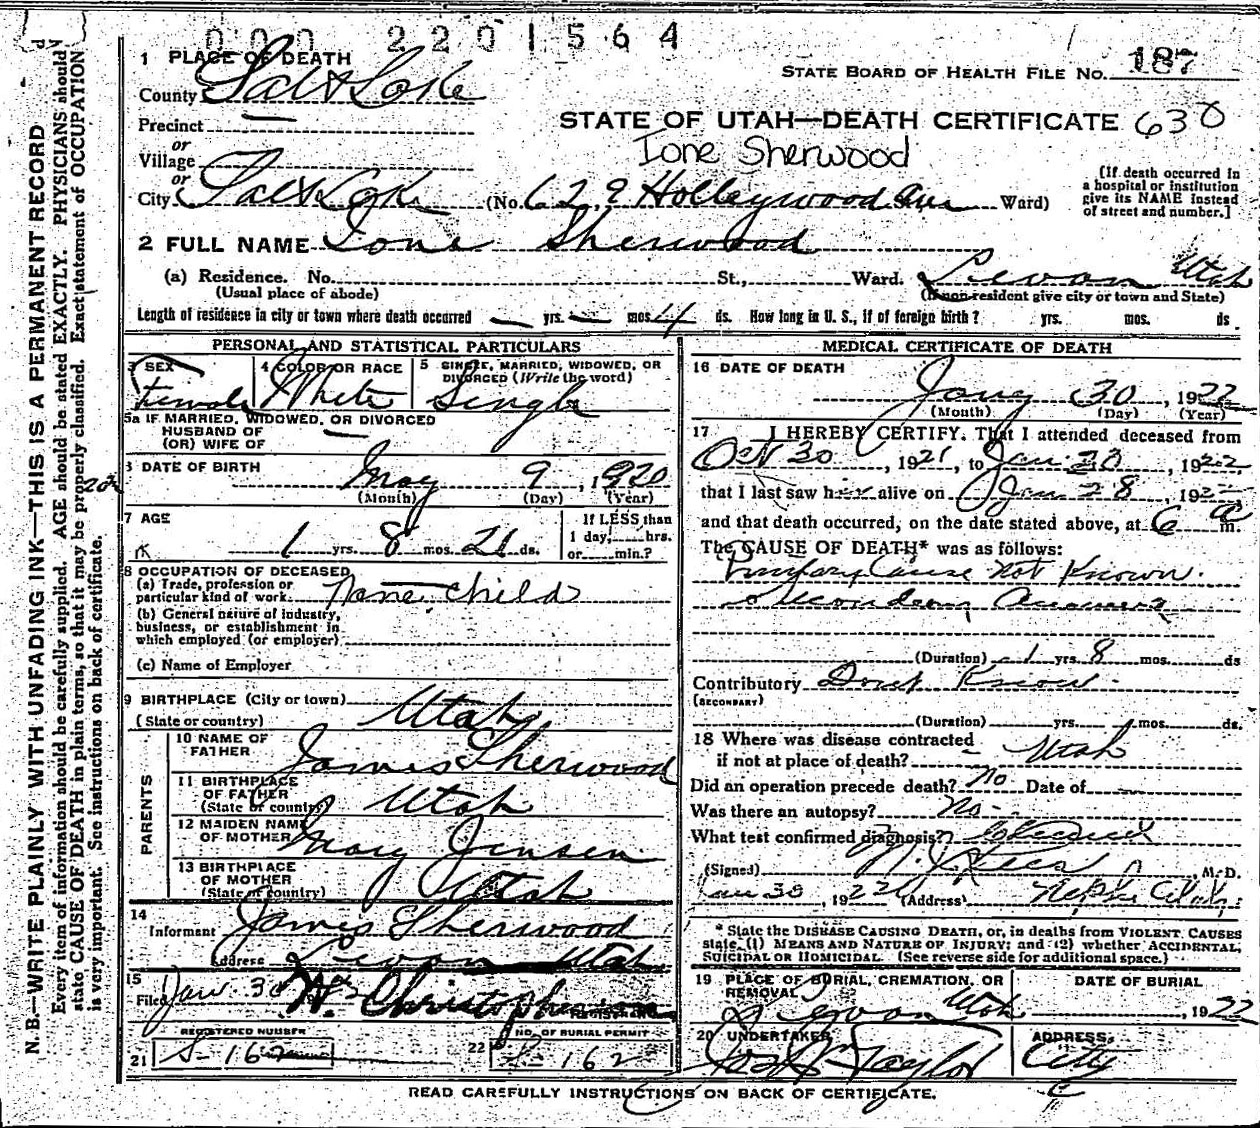 000 2201564
1 PLACE OF DEATH
STATE BOARD OF HEALTH FILE NO. 187
County Salt Lake
STATE OF UTAH—DEATH CERTIFICATE 630
Precinct
or
Ione Sherwood
Village
or
City Salt Lake (No. 629 Holleywood Ave Ward)
(If death occurred in
a hospital or institution
give its NAME instead
of street and number.]
2 FULL NAME Ione Sherwood
(a) Residence. No. St., Ward. Levan Utah
(Usual place of abode) (If non-resident give city or town and State)
Length of residence in city or town where death occurred — yrs. — mos. 4 ds. How long in U. S., if of foreign birth? yrs. mos. ds
PERSONAL AND STATISTICAL PARTICULARS
3 SEX
Female
4 COLOR OR RACE
White
5 SINGLE, MARRIED, WIDOWED, OR
DIVORCED (Write the word)
Single
5a IF MARRIED, WIDOWED, OR DIVORCED
HUSBAND OF
(OR) WIFE OF
6 DATE OF BIRTH
May 9, 1920
(Month) (Day) (Year)
7 AGE
1 yrs. 8 mos. 21 ds.
If LESS than
1 day, hrs.
or min.?
8 OCCUPATION OF DECEASED
(a) Trade, profession or
particular kind of work. None. Child
(b) General nature of industry,
business, or establishment in
which employed (or employer)
(c) Name of Employer
9 BIRTHPLACE (City or town)
(State or country) Utah
PARENTS
10 NAME OF
FATHER James Sherwood
11 BIRTHPLACE
OF FATHER
(State or country) Utah
12 MAIDEN NAME
OF MOTHER Mary Jensen
13 BIRTHPLACE
OF MOTHER
(State or country) Utah
14
Informant James Sherwood
Address Levan Utah
15
Filed Jan. 30 Christopherson
REGISTRAR
REGISTERED NUMBER
21 S-162
NO. OF BURIAL PERMIT
22 S-162
MEDICAL CERTIFICATE OF DEATH
16 DATE OF DEATH
Jany 30, 1922
(Month) (Day) (Year)
17 I HEREBY CERTIFY, That I attended deceased from
Oct 30, 1921, to Jan 1922
that I last saw h alive on Jan 28, 1922
and that death occurred, on the date stated above, at 6 a m.
The CAUSE OF DEATH* was as follows:
Primary Cause Not Known.
Secondary
(Duration) 1 yrs. 8 mos. ds
Contributory Dont Know.
(SECONDARY)
(Duration) yrs. mos. ds.
18 Where was disease contracted
if not at place of death? Utah
Did an operation precede death? No Date of
Was there an autopsy? No.
What test confirmed diagnosis?
(Signed) Rees, M.D.
Jan 30, 1922 (Address) Nephi Utah.
* State the DISEASE CAUSING DEATH, or, in deaths from VIOLENT CAUSES
state (1) MEANS AND NATURE OF INJURY; and (2) whether ACCIDENTAL,
SUICIDAL OR HOMICIDAL. (See reverse side for additional space.)
19 PLACE OF BURIAL, CREMATION, OR
REMOVAL
Levan Utah
DATE OF BURIAL
, 1922
20 UNDERTAKER
Taylor
ADDRESS.
City
READ CAREFULLY INSTRUCTIONS ON BACK OF CERTIFICATE.
N. B.—WRITE PLAINLY WITH UNFADING INK—THIS IS A PERMANENT RECORD
Every item of information should be carefully supplied. AGE should be stated EXACTLY. PHYSICIANS should
state CAUSE OF DEATH in plain terms, so that it may be properly classified. Exact statement of OCCUPATION
is very important. See instructions on back of certificate.